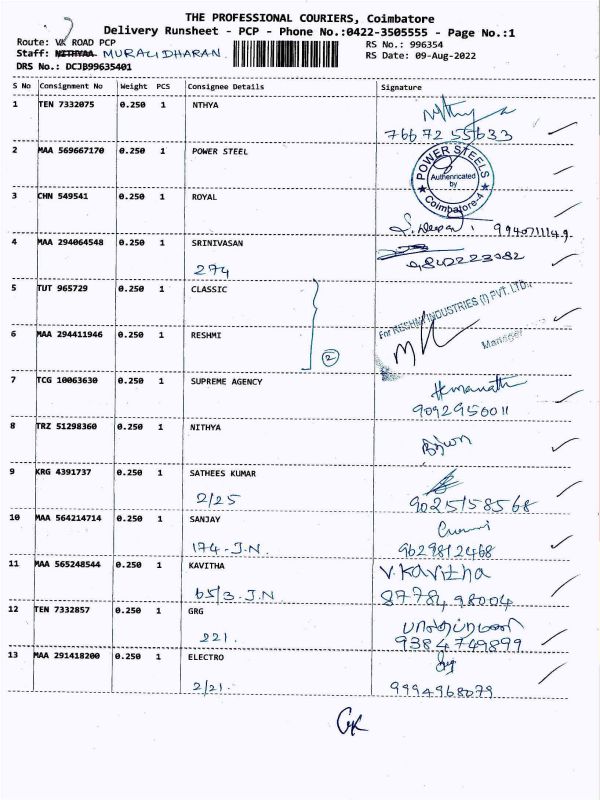 THE PROFESSIONAL COURIERS, Coimbatore
Delivery Runsheet - PCP - Phone No.:0422-3505555 - Page No.:1
Route: VK ROAD PCP
RS No.: 996354
Staff: NITHYAA MURALIDHARAN.
RS Date: 09-Aug-2022
DRS No.: DCJB99635401
S No Consignment No Weight PCS Consignee Details Signature
1 TEN 7332075 0.250 1 NTHYA
76672 55633
2 MAA 569667170 0.250 1 POWER STEEL
POWER STEELS
Authenricated
by
Coimbatore-4
3 CHN 549541 0.250 1 ROYAL
9940711149
4 MAA 294064548 0.250 1 SRINIVASAN
274
9840223082
5 TUT 965729 0.250 1 CLASSIC
For RESHMI INDUSTRIES (I) PVT. LTD.,
6 MAA 294411946 0.250 1 RESHMI
2
Manager
7 TCG 10063630 0.250 1 SUPREME AGENCY
Hemanath
9092950011
8 TRZ 51298360 0.250 1 NITHYA
நித்யா
9 KRG 4391737 0.250 1 SATHEES KUMAR
2/25
9025158568
10 MAA 564214714 0.250 1 SANJAY
174-J.N.
9629812468
11 MAA 565248544 0.250 1 KAVITHA
V. Kavitha
65/3-J.N
87784 98004
12 TEN 7332857 0.250 1 GRG
221.
9384749899
13 MAA 291418200 0.250 1 ELECTRO
2/21.
9994968079